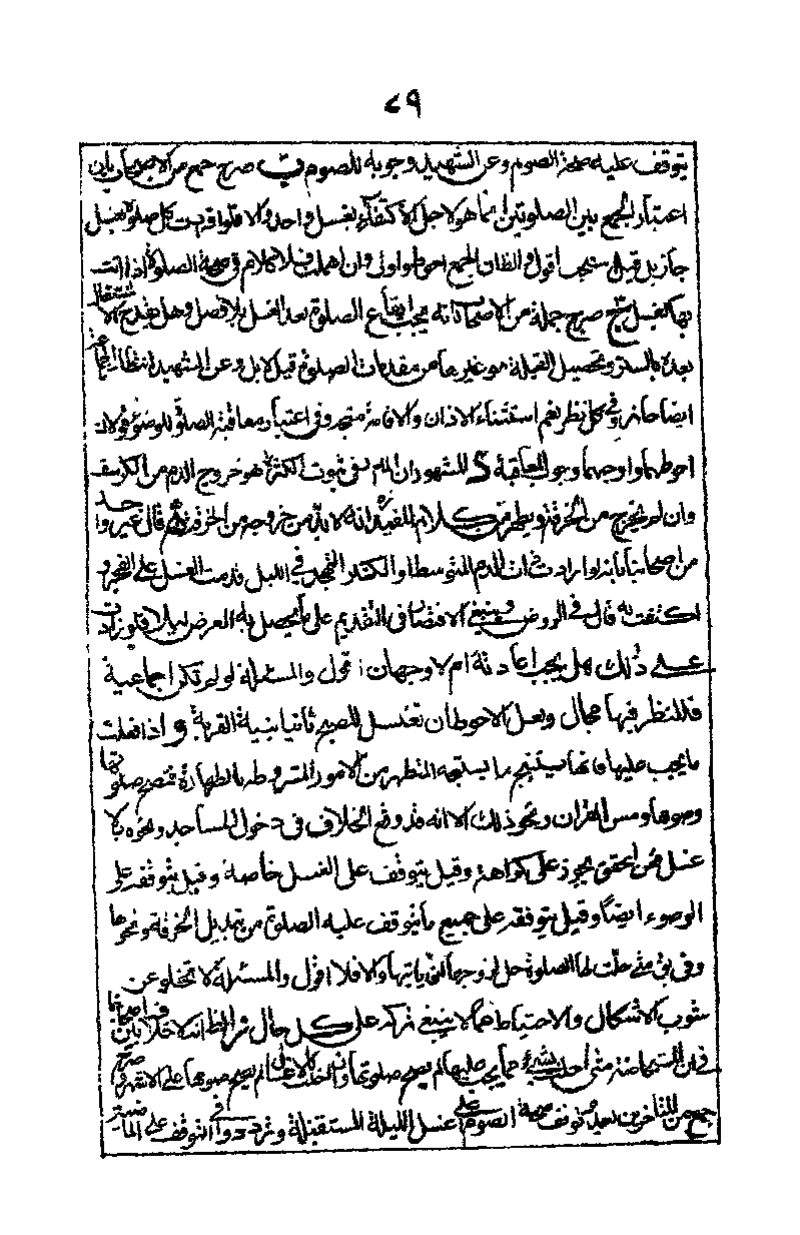 ٧٩
يتوقف عليه صحة الصوم وعن الشهيد وجوبه للصوم صرح جمع من الاصحاب بان
اعتبار الجمع بين الصلوتين انما هو لاجل الاكتفاء بغسل واحد والا فلو افردت كل صلوة بغسل
جاز بل قيل يستحب اقول والظان الجمع احوط واولى وان اهملت فلا كلام في صحة الصلوة اذا اتت
بها بغسل صرح جملة من الاصحاب انه يجب ايقاع الصلوة بعد الغسل بلا فصل وهل يقدح الاشتغال
بعده بالستر وتحصيل القبلة وغيرها من مقدمات الصلوة قيل لا بل وعن الشهيد انتظار الجماعة
ايضا جائز وفي كل نظر نعم استثناء الاذان والاقامة متجه وفي اعتبار معاقبة الصلوة للوضوء قولان
احوطهما واوجههما وجوب المعاقبة المشهور ان المدار في ثبوت الكثرة هو خروج الدم من الكرسف
وان لم يخرج من الخرقة ويظهر من كلام المفيد انه لابد من خروجه من الخرقة قال غير واحد
من اصحابنا بانه لو ارادت ذات الدم المتوسط او الكثير التهجد في الليل قدمت الغسل على الفجر و
اكتفت به قال في الروض وينبغي الاقتصار في التقديم على ما يحصل به الغرض ليلا فلو زادت
على ذلك هل يجب اعادته ام لا وجهان اقول والمسئلة لو لم تكن اجماعية
فللنظر فيها مجال ولعل الاحوط ان تغتسل للصبح ثانيا بنية القربة و اذا فعلت
ما يجب عليها فانها يستبيح ما يستبيحه المتطهر من الامور المشروطة بالطهارة فتصح صلوتها
وصومها ومس القران ونحو ذلك الا انه قد وقع الخلاف في دخول المساجد ونحوه بلا
غسل فعن المحقق يجوز على كراهة وقيل يتوقف على الغسل خاصة وقيل يتوقف على
الوضوء ايضا وقيل يتوقف على جميع ما يتوقف عليه الصلوة من تبديل الخرقة ونحوها
وفي متى حلت لها الصلوة حل لزوجها ان ياتيها والا فلا اقول والمسئلة لا تخلو عن
شوب الاشكال والاحتياط مما لا ينبغي تركه على كل حال ثم الظ انه لا خلاف بين اصحابنا
في ان المستحاضة متى اخلت بشيء مما يجب عليها لم يصح صلوتها وان اخلت بالاغسال لم يصح صومها على الاشهر وصرح
جمع من المتاخرين بعدم توقف صحة الصوم على غسل الليلة المستقبلة وترددوا في التوقف على الماضية